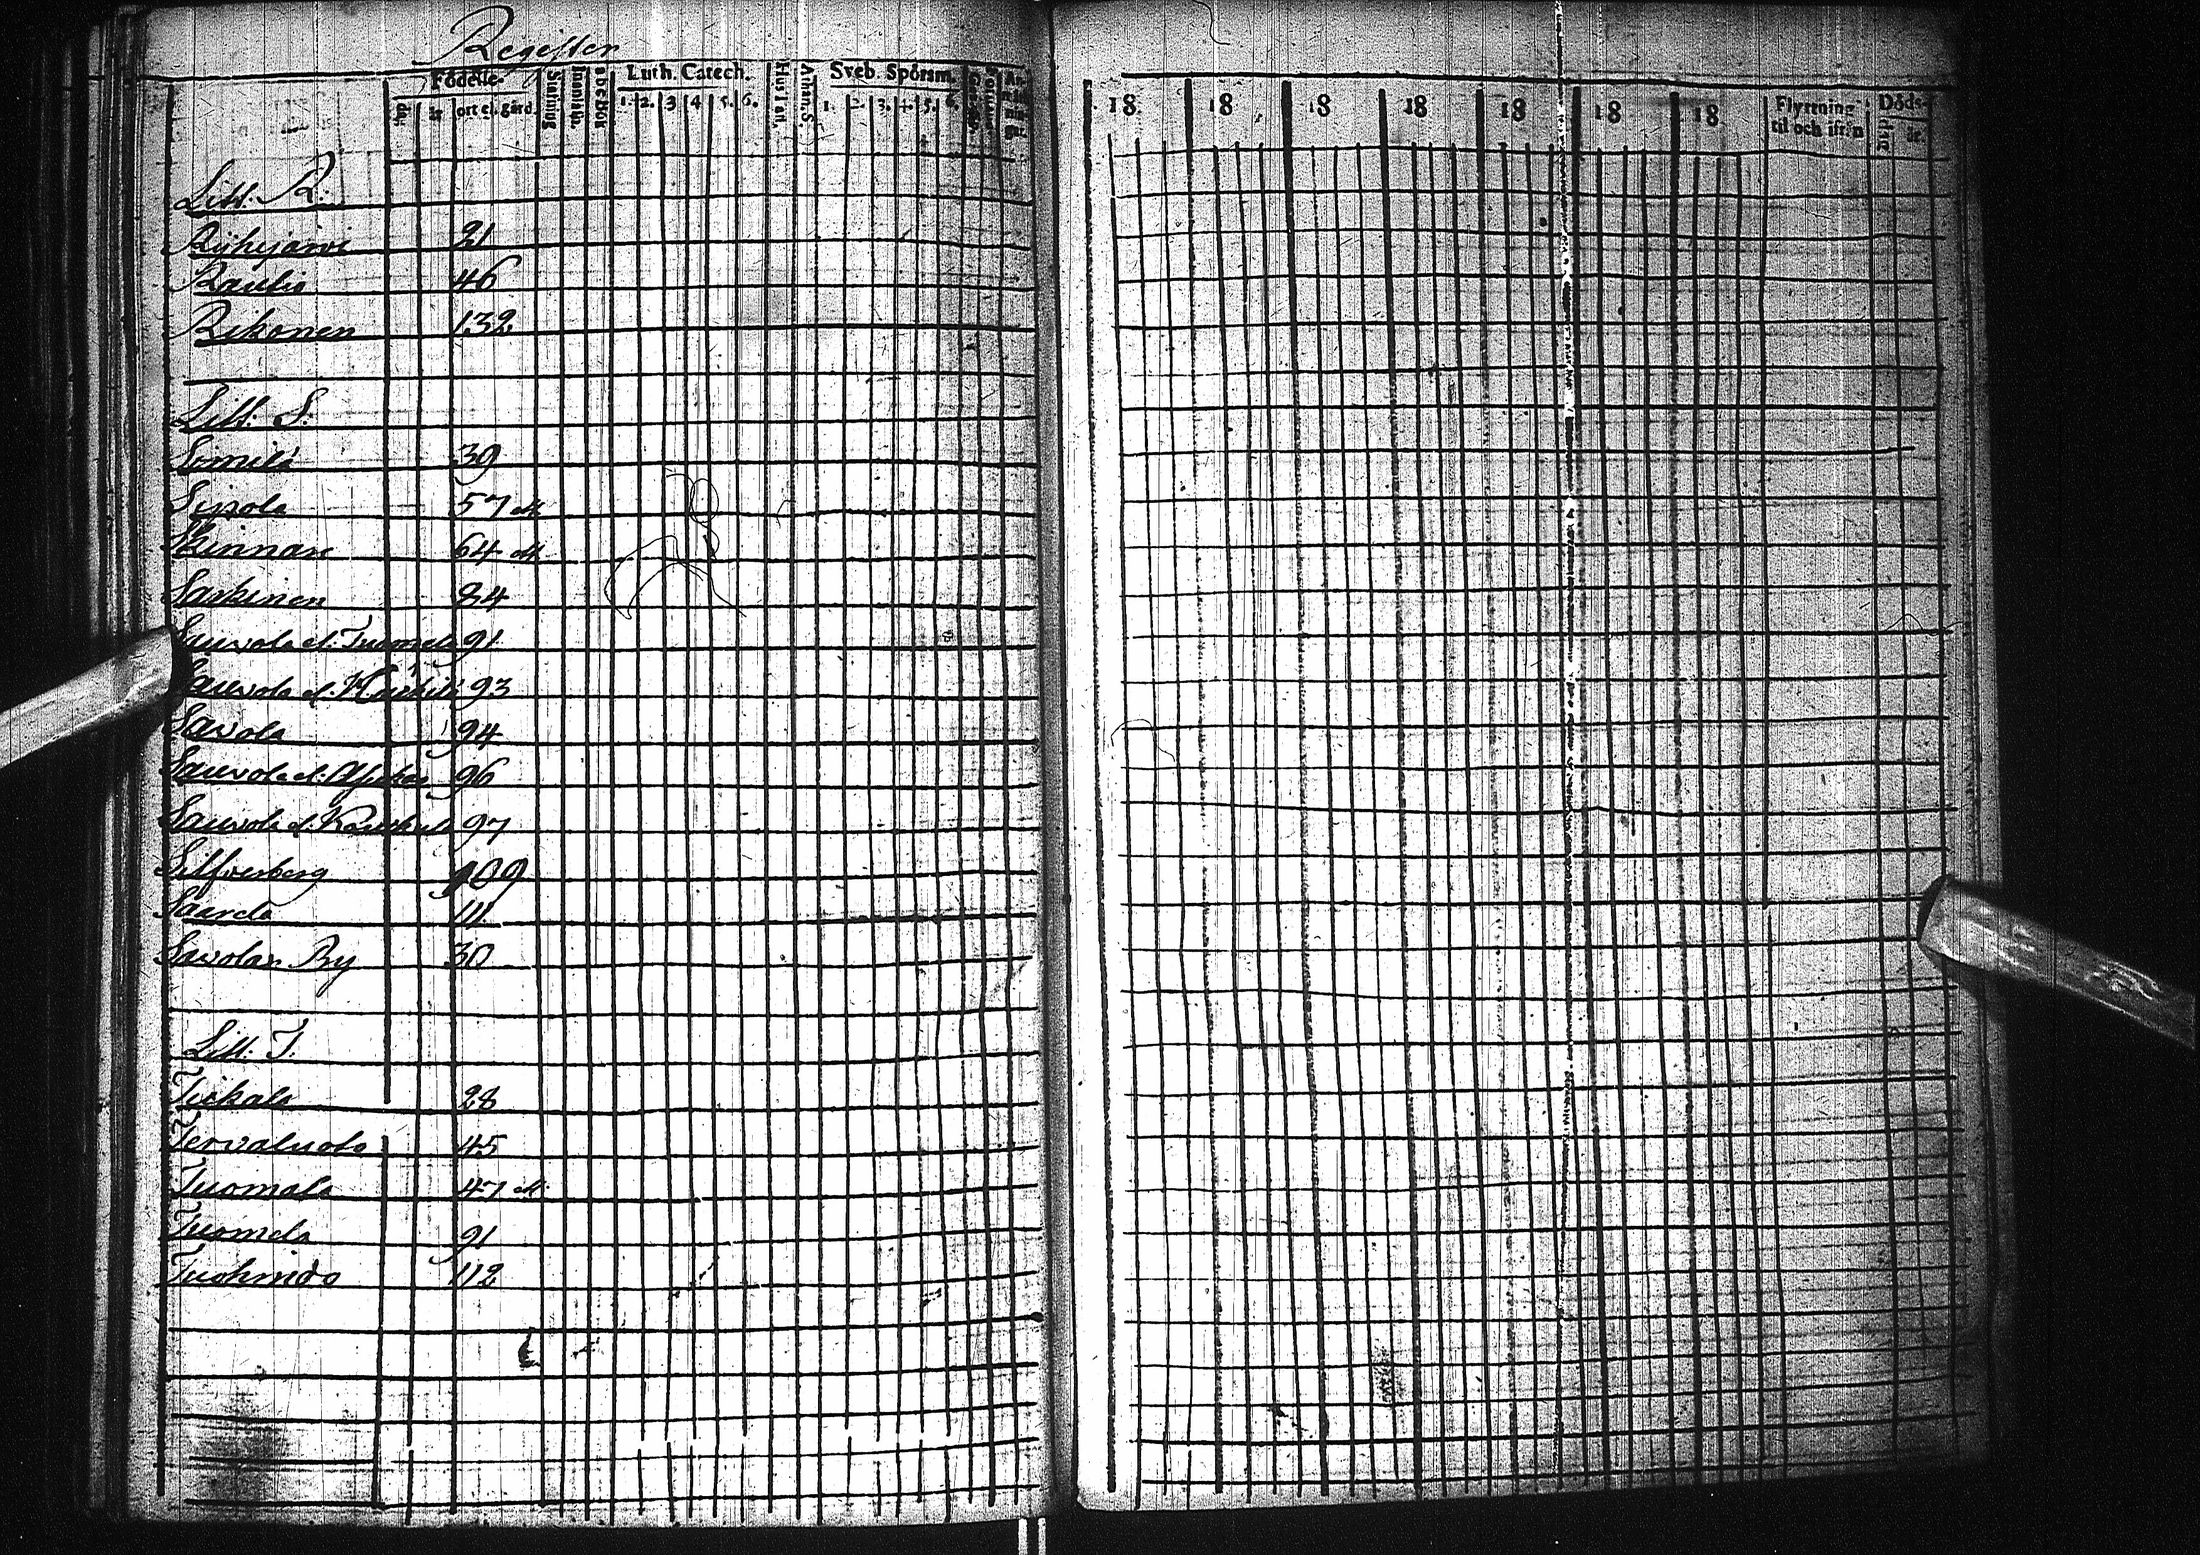 Register
Födelse- Luth. Catech. Sveb. Spörsm.
dag år ort el. gård. Stafning Innanläsn. abcbok 1. 2. 3 4 5. 6. Hustafl. Athan. S. 1. 2. 3. 4. 5. 6.
18 18 18 18 18 18 18 Flyttning til och ifrån Döds- dag år.
Litt. R.
Rÿhijärvi 21
Rautio 46
Rikonen 132
Litt. S.
Somilä 39
Sipola 57
Skinnare 64
Sarkinen 84
Sauvola el. Tuomela 91
Sauvola el. 93
Savola 94
Sauvola el. 96
Sauvola el. 97
Silfverberg 109
Saarela 111
Savolax By 30
Litt. T.
Tickala 28
Tervaluoto 45
Tuomala 47
Tuomela 91
112